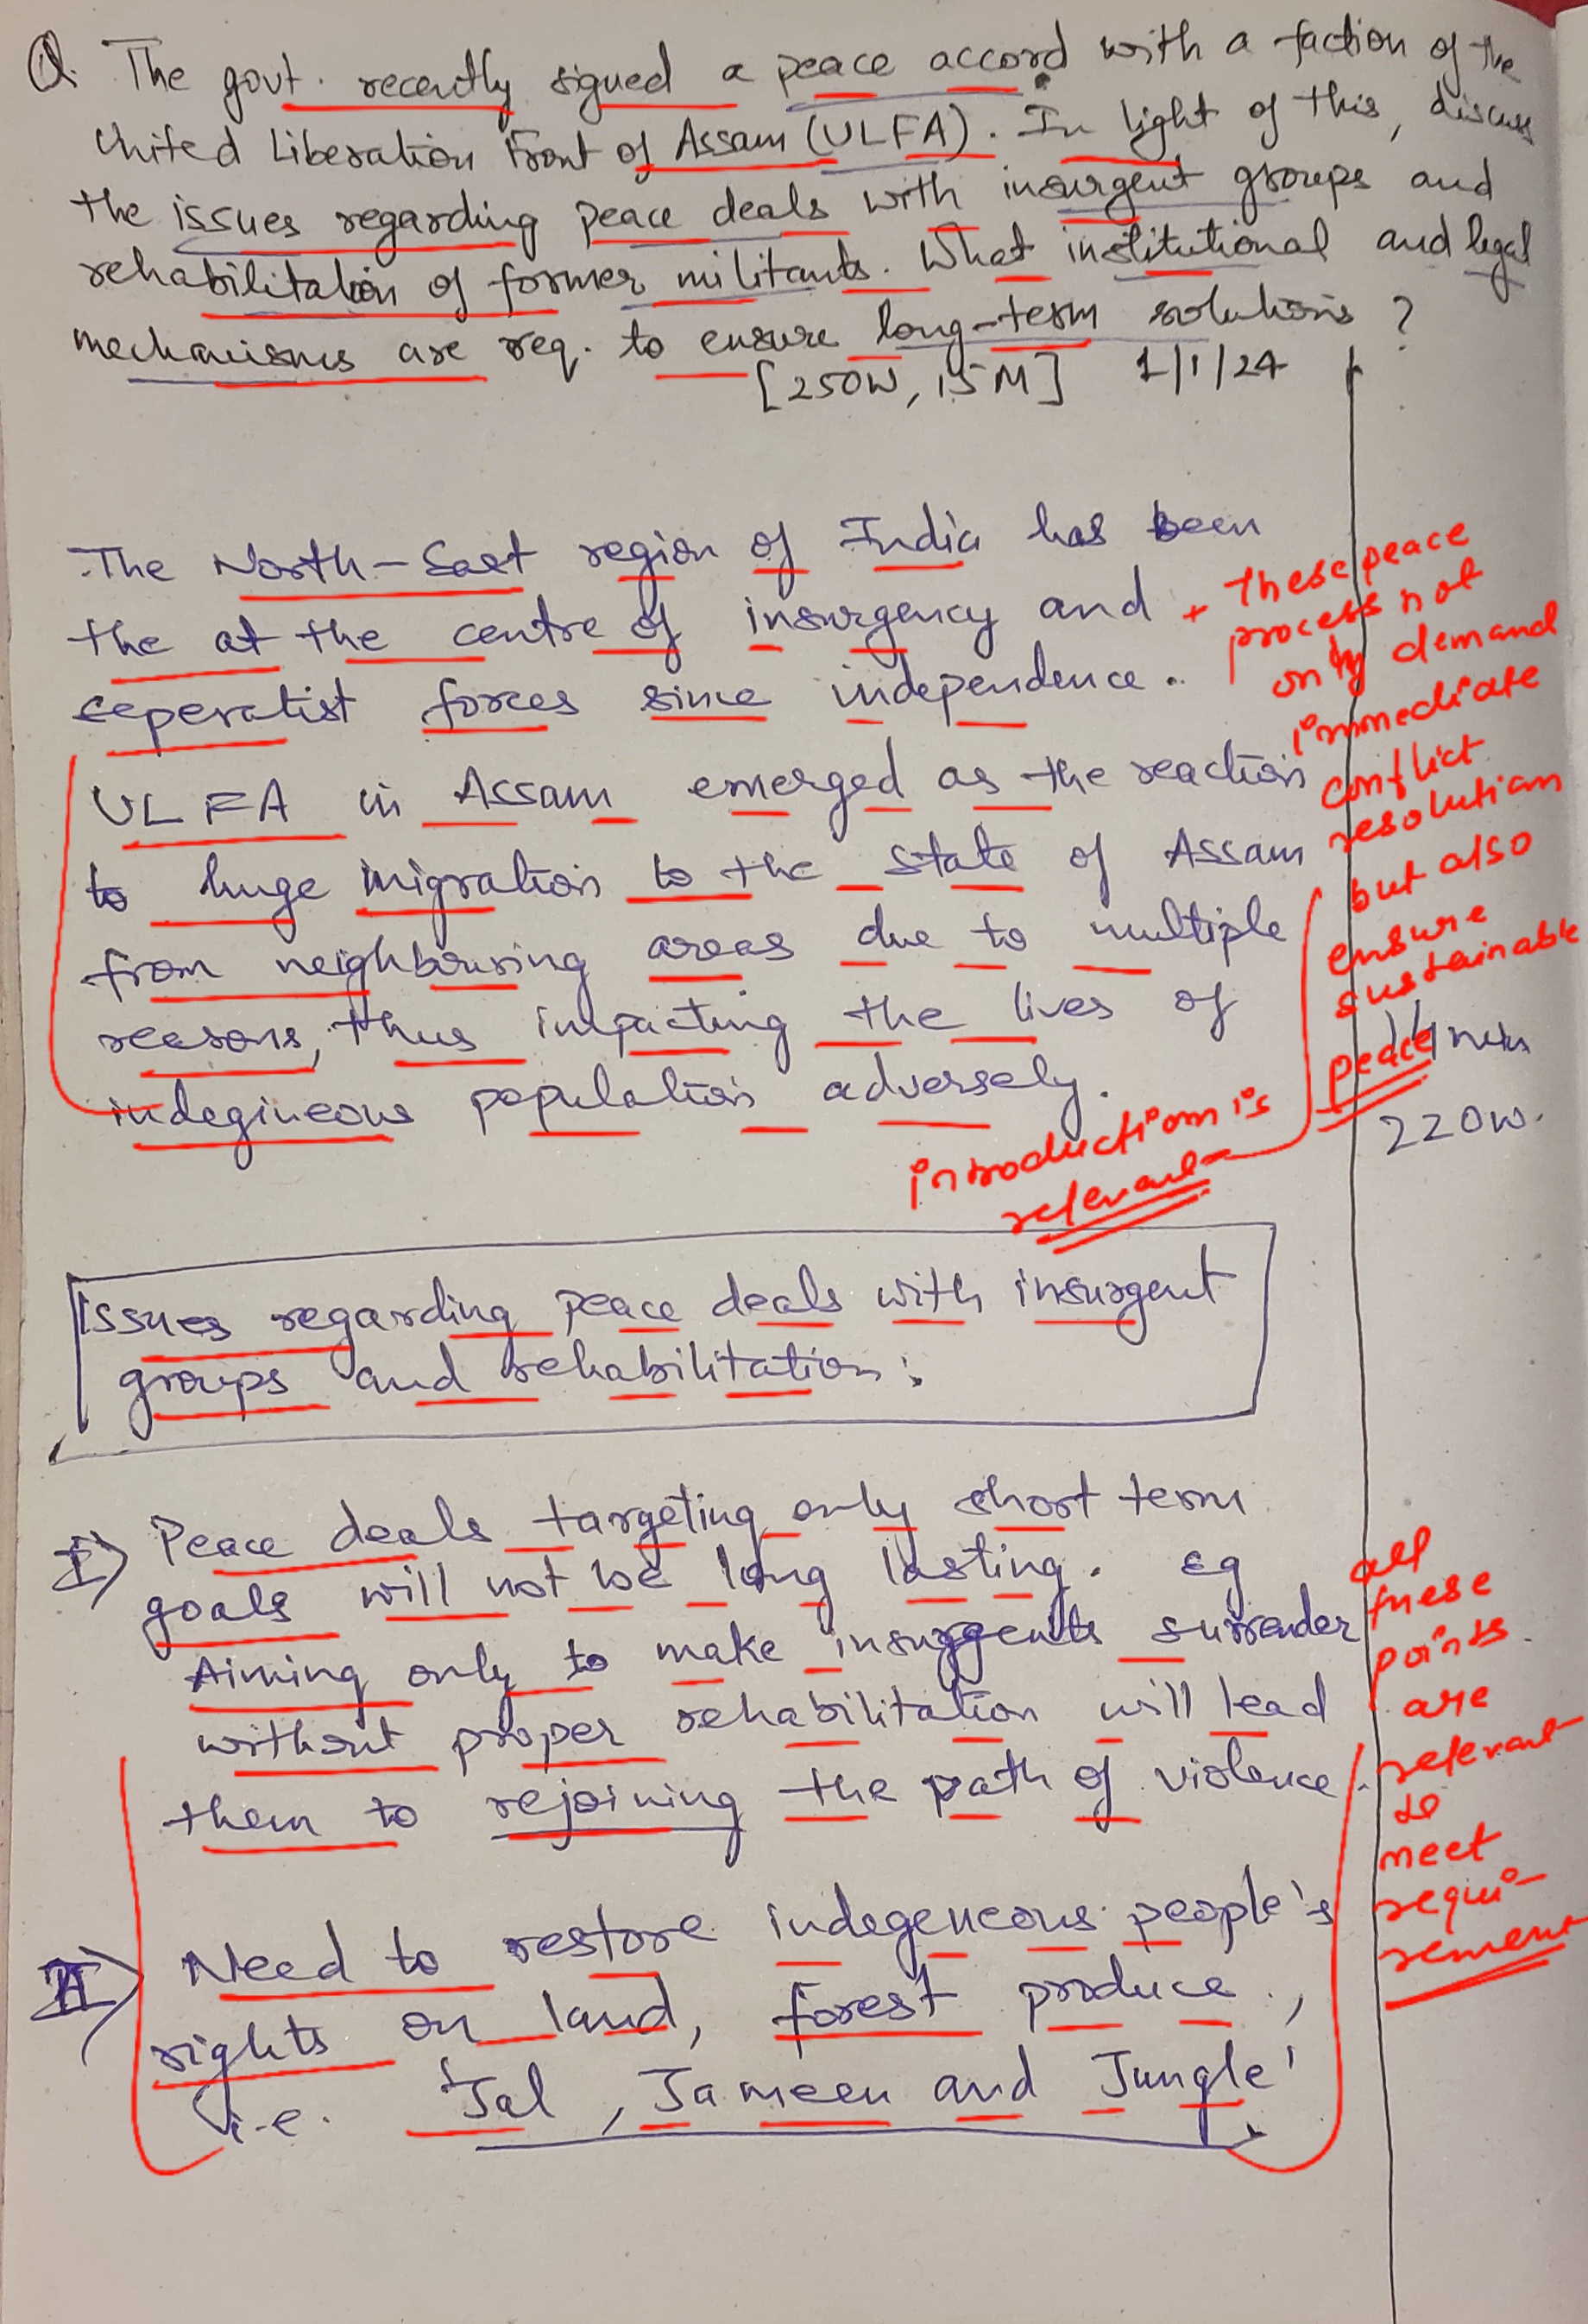 Q. The govt. recently signed a peace accord with a faction of the
United Liberation Front of Assam (ULFA). In light of this, discuss
the issues regarding peace deals with insurgent groups and
rehabilitation of former militants. What institutional and legal
mechanisms are req. to ensure long-term solutions ?
[250W, 15M] 1/1/24
The North-East region of India has been
the at the centre of insurgency and
seperatist forces since independence.
ULFA in Assam emerged as the reaction
to huge migration to the state of Assam
from neighbouring areas due to multiple
reasons, thus impacting the lives of
indegineous population adversely.
+ These peace
process not
only demand
immediate
conflict
resolution
but also
ensure
sustainable
peace
14 min
220W.
introduction is
relevant
Issues regarding peace deals with insurgent
groups and rehabilitation:
I) Peace deals targeting only short term
goals will not be long lasting. Eg
Aiming only to make insurgents surrender
without proper rehabilitation will lead
them to rejoining the path of violence.
II) Need to restore indegeneous people's
rights on land, forest produce,
i.e. 'Jal, Jameen and Jungle'
all
these
points
are
relevant
to
meet
requi-
rement